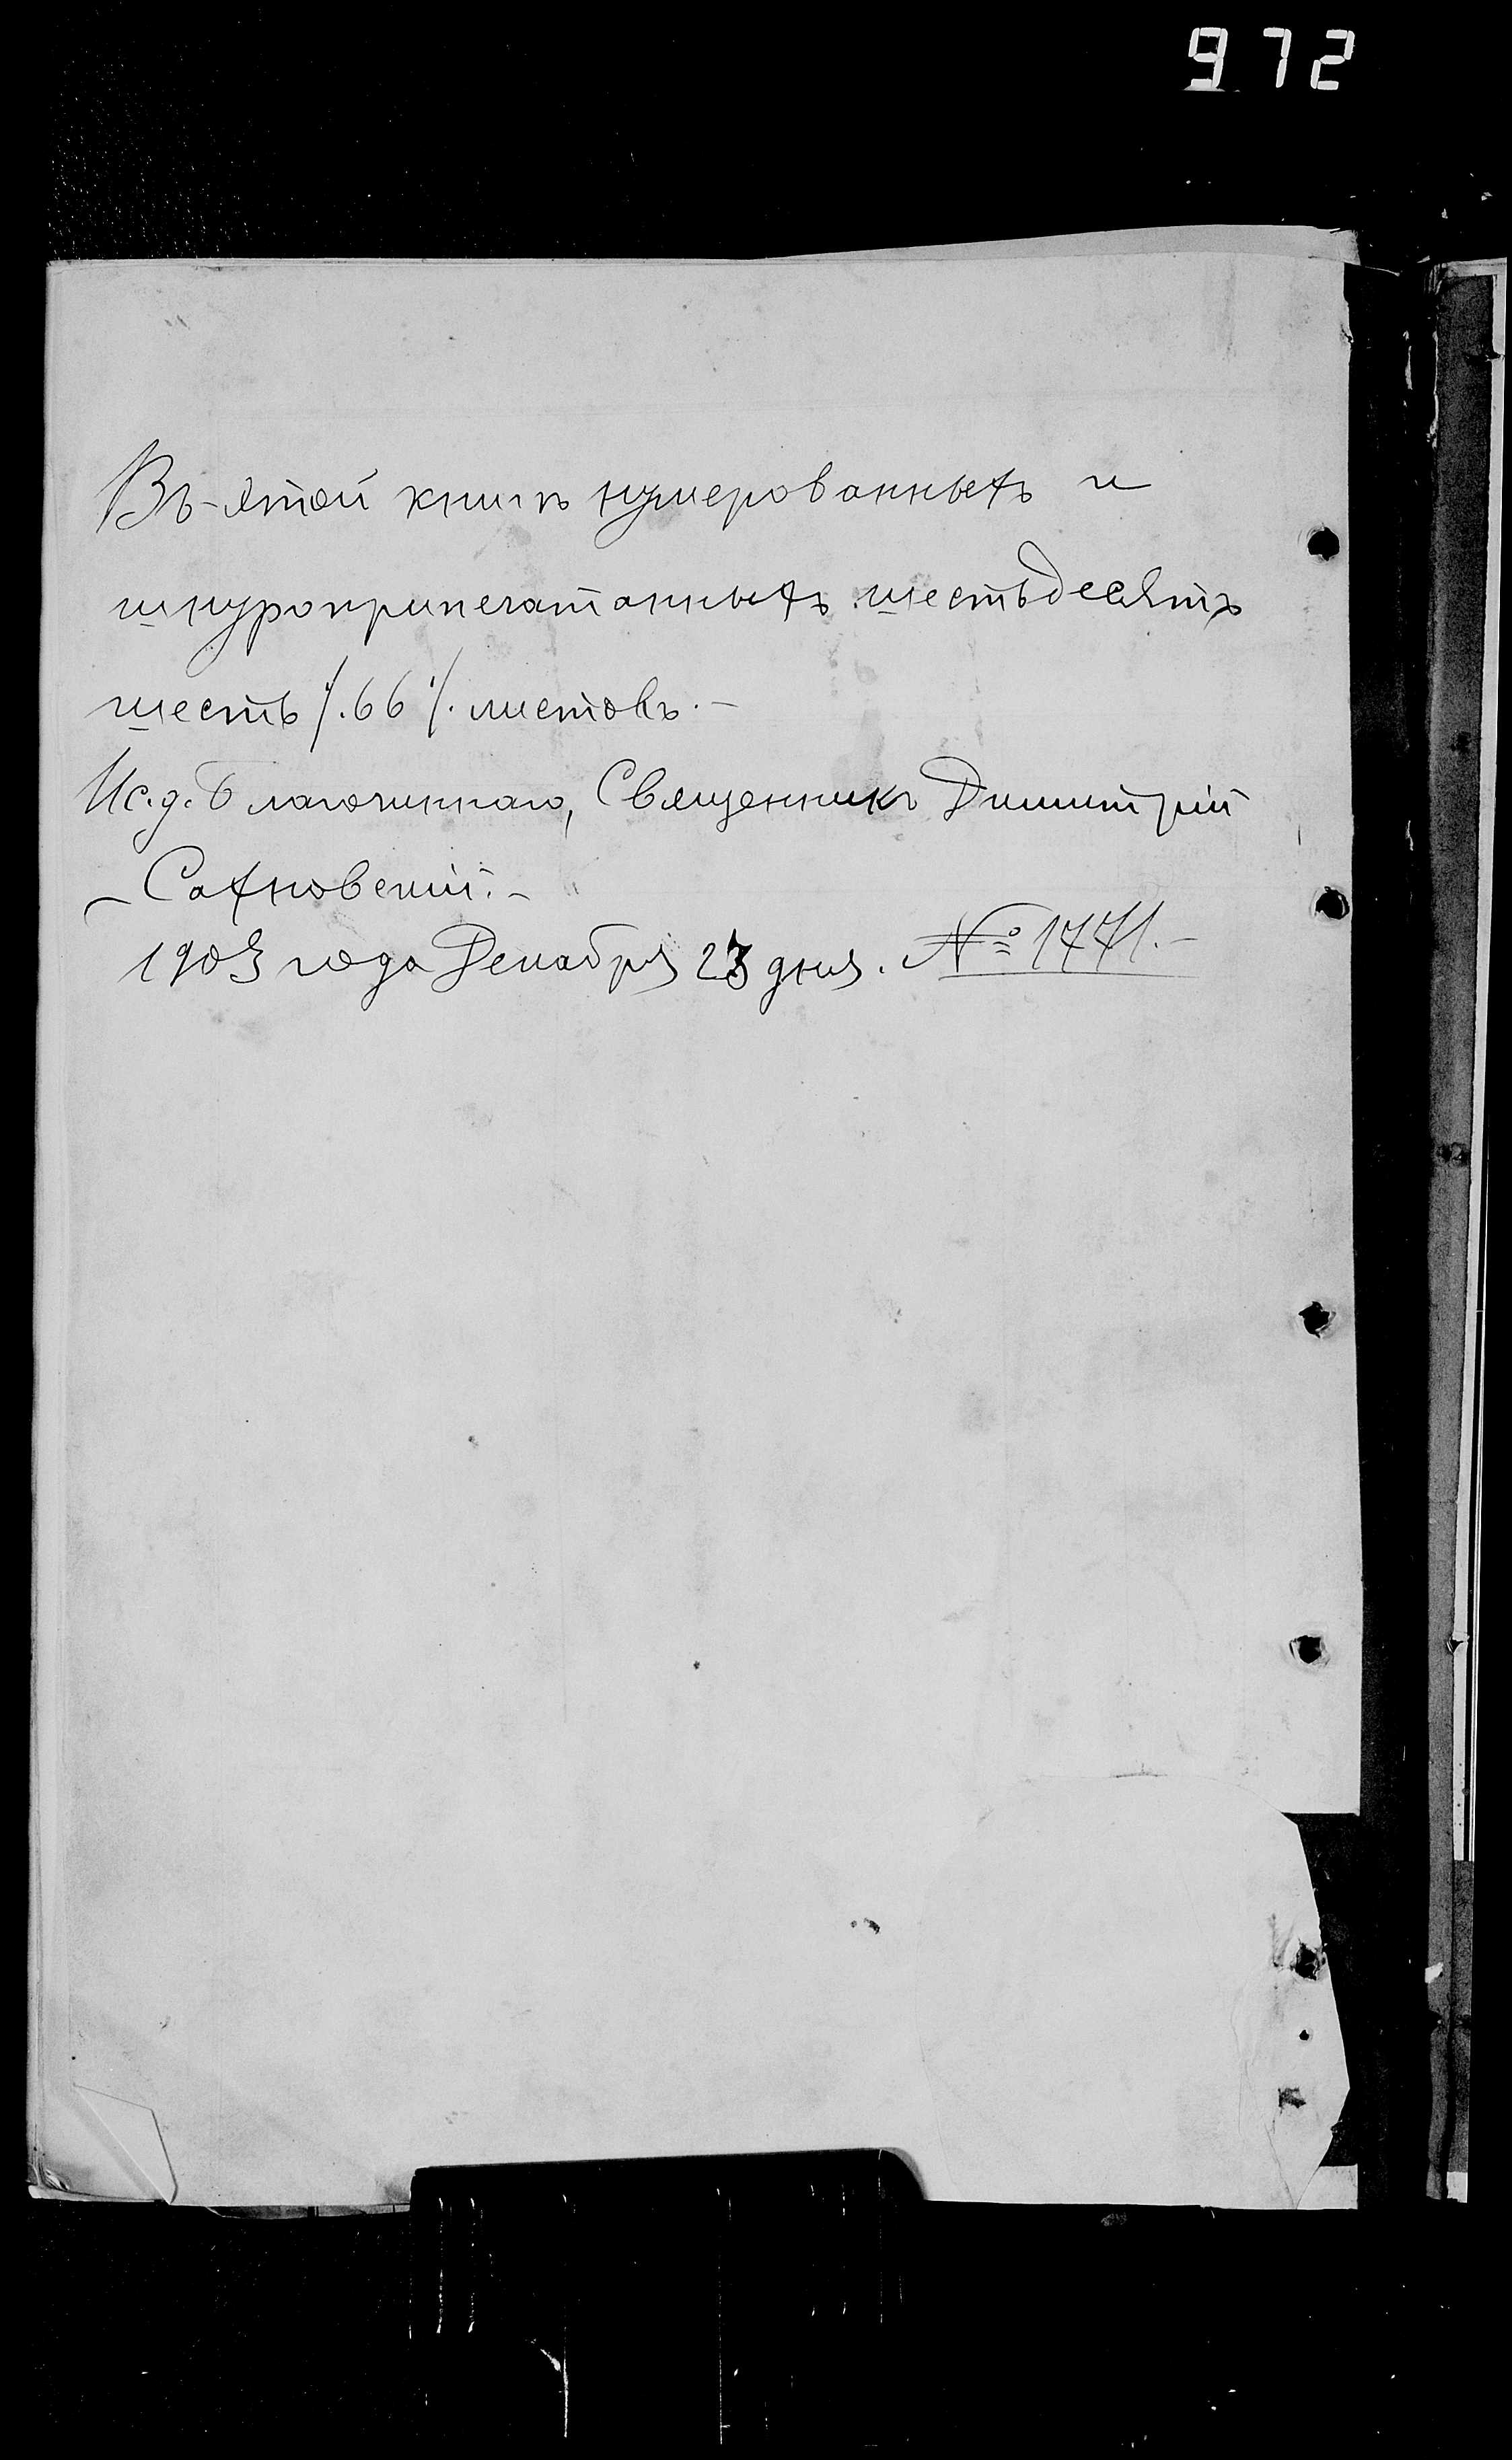 972
Въ-этой книгѣ нумерованныхъ и
шнуроприпечатанныхъ шестьдесятъ
шесть /.66/. листовъ.-
Ис.д. Благочиннаго, Священникъ Димитрій
Сахновскій.-
1903 года Декабря 23 дня. № 1771.-